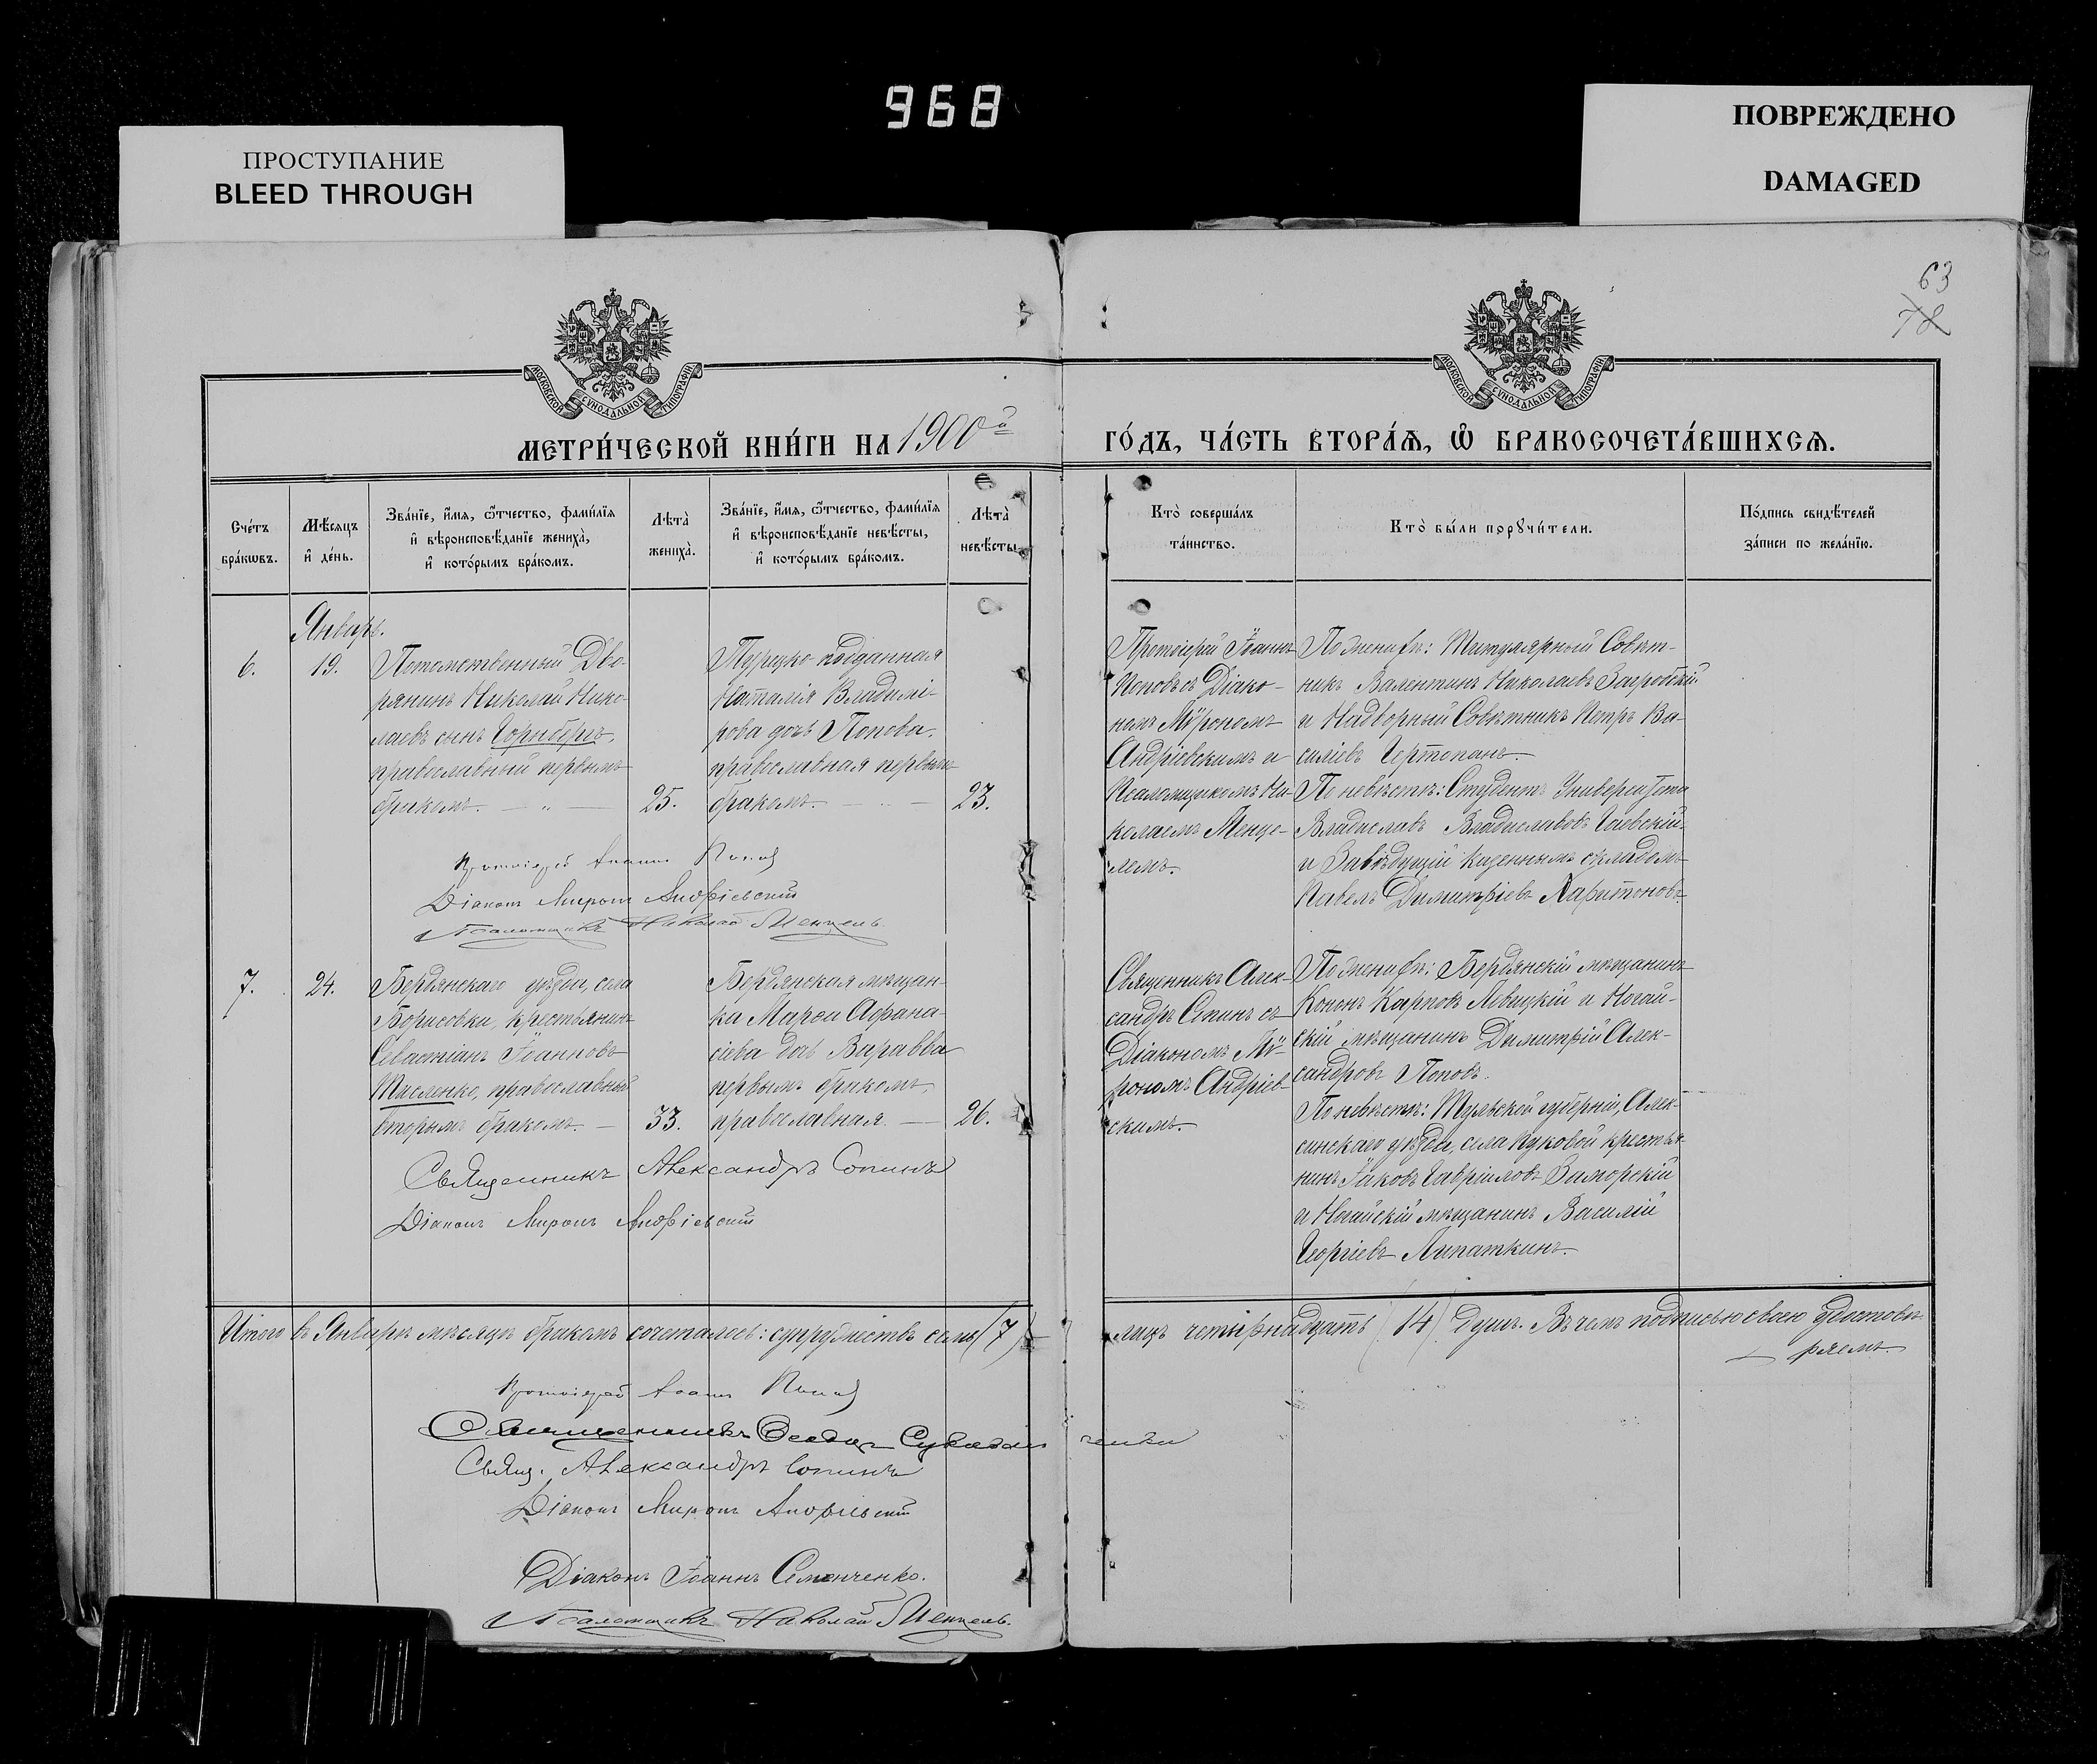 968
ПРОСТУПАНИЕ
BLEED THROUGH
ПОВРЕЖДЕНО
DAMAGED
63
78
МОСКОВСКОЙ СѴНОДАЛЬНОЙ ТИПОГРАФІИ
МОСКОВСКОЙ СѴНОДАЛЬНОЙ ТИПОГРАФІИ
МЕТРИ́ЧЕСКОЙ КНИ́ГИ НА 1900й
ГО́ДЪ, ЧА́СТЬ ВТОРА́Ѧ, Ѽ БРАКОСОЧЕТА́ВШИХСѦ.
Сче́тъ
бра́кѡвъ.
Мѣ́сѧцъ
и҆ де́нь.
Зва́нїе, и҆́мѧ, ѻ҆́тчество, фами́лїѧ
и҆ вѣроисповѣ́данїе жениха̀,
и҆ кото́рымъ бра́комъ.
Лѣта̀
жениха̀.
Зва́нїе, и҆́мѧ, ѻ҆́тчество, фами́лїѧ
и҆ вѣроисповѣ́данїе невѣ́сты,
и҆ кото́рымъ бра́комъ.
Лѣта̀
невѣ́сты.
Кто̀ соверша́лъ
та́инство.
Кто̀ бы́ли порꙋчи́тели.
По́дпись свидѣ́телей
за́писи по жела́нїю.
Январь.
6.
19.
Потомственный Дво-
рянинъ Николай Нико-
лаевъ сынъ Горнбергъ,
православный первымъ
бракомъ. — „ —
25.
Турецко-подданная
Наталія Владимі-
рова дочь Попова,
православная первымъ
бракомъ. — „ —
23.
Протоіерей Іоаннъ
Поповъ съ Діако-
номъ Мѵрономъ
Андріевскимъ и
Псаломщикомъ Ни-
колаемъ Менце-
лемъ.
По женихѣ: Титулярный Совѣт-
никъ Валентинъ Николаевъ Загробскій
и Надворный Совѣтникъ Петръ Ва-
силіевъ Чертопанъ.
По невѣстѣ: Студентъ Университета
Владиславъ Владиславовъ Гаевскій
и Завѣдущій казеннымъ складомъ
Павелъ Димитріевъ Харитоновъ.
Протоіерей Іоаннъ Поповъ
Діаконъ Миронъ Андріевскій
Псаломщикъ Николай Менцель.
7.
24.
Бердянскаго уѣзда, села
Борисовки, крестьянинъ
Севастіанъ Іоанновъ
Тасленко, православный
вторымъ бракомъ. —
33.
Бердянская мѣщан-
ка Марѳа Аѳана-
сіева дочь Варавва
первымъ бракомъ,
православная. —
26.
Священникъ Алек-
сандръ Сопинъ съ
Діакономъ Мѵ-
рономъ Андріев-
скимъ.
По женихѣ: Бердянскій мѣщанинъ
Кононъ Карповъ Левицкій и Ногай-
скій мѣщанинъ Димитрій Алек-
сандровъ Поповъ.
По невѣстѣ: Тульской губерніи, Алек-
синскаго уѣзда, села Пуковой крестья-
нинъ Іаковъ Гавріиловъ Заморскій
и Ногайскій мѣщанинъ Василій
Георгіевъ Липаткинъ.
Священникъ Александръ Сопинъ
Діаконъ Миронъ Андріевскій
Итого въ Январѣ мѣсяцѣ бракомъ сочеталось: супружествъ семь (7)
лицъ четырнадцать (14) душъ. Въ чемъ подписью своею удостовѣ-
ряемъ.
Протоіерей Іоаннъ Поповъ
Священникъ Ѳеодоръ
Свящ. Александръ Сопинъ
Діаконъ Миронъ Андріевскій
Діаконъ Іоаннъ Семенченко.
Псаломщикъ Николай Менцель.